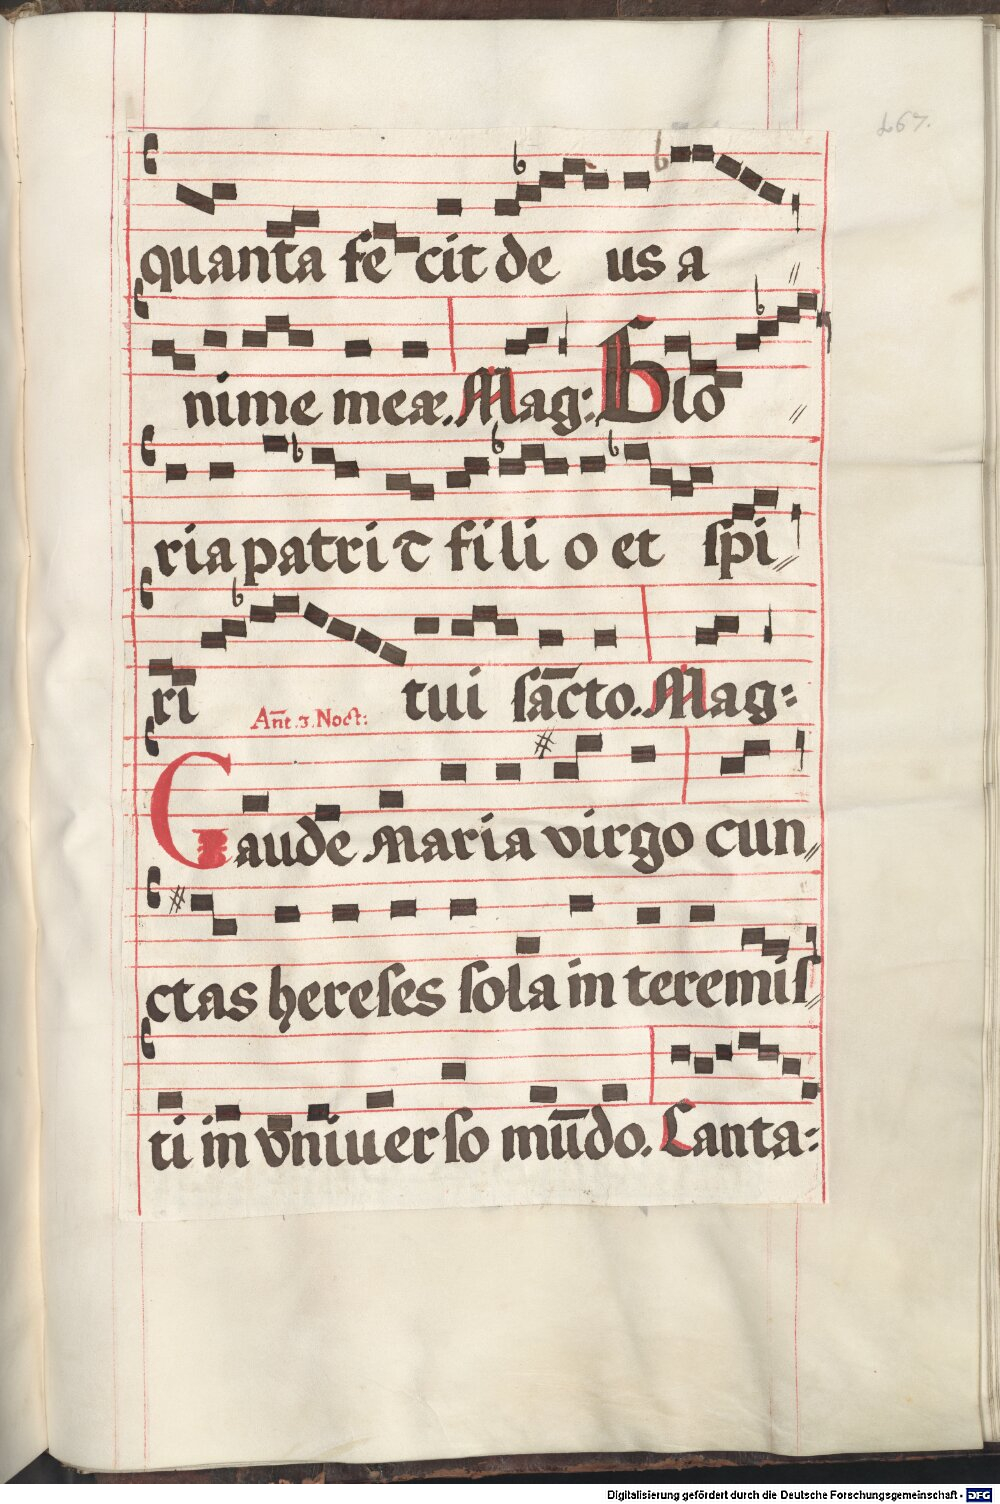 267.
quanta fe cit de us a
nime meæ. Mag: Glo
ria patri et fili o et spi
ri tui sācto. Mag:
Añt. 3. Noct:
Gaude Maria virgo cun
ctas hereses sola in teremis
ti in vniuerso mūdo. Canta:
Digitalisierung gefördert durch die Deutsche Forschungsgemeinschaft - DFG